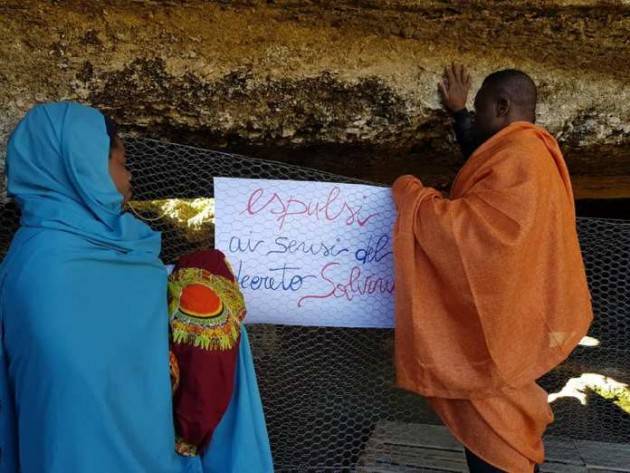 espulsi
ai sensi del
decreto Salvini